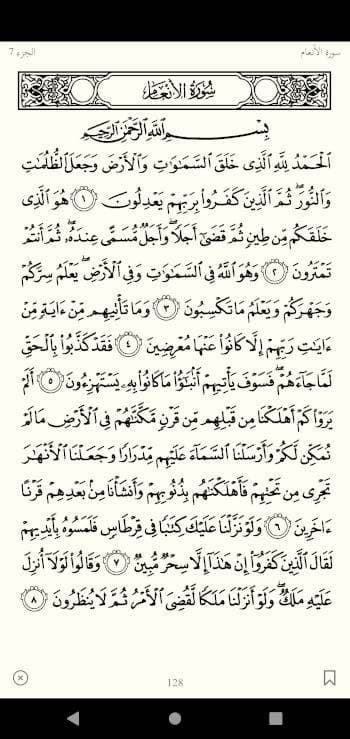 سورة الأنعام
الجزء 7
سُورَةُ الأَنْعَامِ
بِسْمِ ٱللَّهِ ٱلرَّحْمَٰنِ ٱلرَّحِيمِ
ٱلْحَمْدُ لِلَّهِ ٱلَّذِى خَلَقَ ٱلسَّمَٰوَٰتِ وَٱلْأَرْضَ وَجَعَلَ ٱلظُّلُمَٰتِ
وَٱلنُّورَۖ ثُمَّ ٱلَّذِينَ كَفَرُوا۟ بِرَبِّهِمْ يَعْدِلُونَ ١ هُوَ ٱلَّذِى
خَلَقَكُم مِّن طِينٍ ثُمَّ قَضَىٰٓ أَجَلًاۖ وَأَجَلٌ مُّسَمًّى عِندَهُۥۖ ثُمَّ أَنتُمْ
تَمْتَرُونَ ٢ وَهُوَ ٱللَّهُ فِى ٱلسَّمَٰوَٰتِ وَفِى ٱلْأَرْضِۖ يَعْلَمُ سِرَّكُمْ
وَجَهْرَكُمْ وَيَعْلَمُ مَا تَكْسِبُونَ ٣ وَمَا تَأْتِيهِم مِّنْ ءَايَةٍ مِّنْ
ءَايَٰتِ رَبِّهِمْ إِلَّا كَانُوا۟ عَنْهَا مُعْرِضِينَ ٤ فَقَدْ كَذَّبُوا۟ بِٱلْحَقِّ
لَمَّا جَآءَهُمْۖ فَسَوْفَ يَأْتِيهِمْ أَنۢبَٰٓؤُا۟ مَا كَانُوا۟ بِهِۦ يَسْتَهْزِءُونَ ٥ أَلَمْ
يَرَوْا۟ كَمْ أَهْلَكْنَا مِن قَبْلِهِم مِّن قَرْنٍ مَّكَّنَّٰهُمْ فِى ٱلْأَرْضِ مَا لَمْ
نُمَكِّن لَّكُمْ وَأَرْسَلْنَا ٱلسَّمَآءَ عَلَيْهِم مِّدْرَارًا وَجَعَلْنَا ٱلْأَنْهَٰرَ
تَجْرِى مِن تَحْتِهِمْ فَأَهْلَكْنَٰهُم بِذُنُوبِهِمْ وَأَنشَأْنَا مِنۢ بَعْدِهِمْ قَرْنًا
ءَاخَرِينَ ٦ وَلَوْ نَزَّلْنَا عَلَيْكَ كِتَٰبًا فِى قِرْطَاسٍ فَلَمَسُوهُ بِأَيْدِيهِمْ
لَقَالَ ٱلَّذِينَ كَفَرُوٓا۟ إِنْ هَٰذَآ إِلَّا سِحْرٌ مُّبِينٌ ٧ وَقَالُوا۟ لَوْلَآ أُنزِلَ
عَلَيْهِ مَلَكٌۖ وَلَوْ أَنزَلْنَا مَلَكًا لَّقُضِىَ ٱلْأَمْرُ ثُمَّ لَا يُنظَرُونَ ٨
128